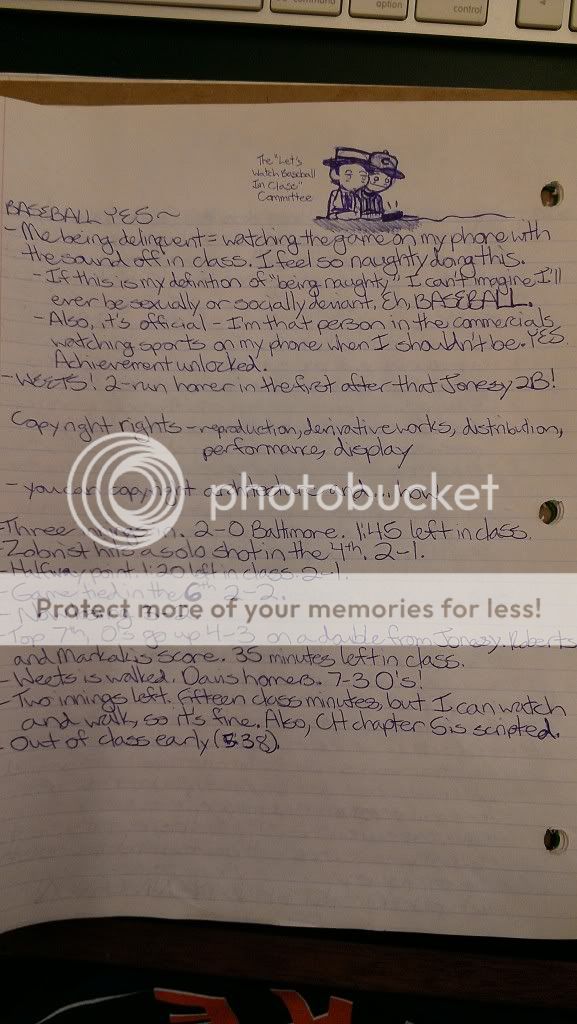 command
option
control
The "Let's
Watch Baseball
In Class"
Committee
BASEBALL YES~
- Me being delinquent = watching the game on my phone with
the sound off in class. I feel so naughty doing this.
- If this is my definition of "being naughty" I can't imagine I'll
ever be sexually or socially deviant. Eh, BASEBALL.
- Also, it's official - I'm that person in the commercials
watching sports on my phone when I shouldn't be. YES.
Achievement unlocked.
- WEETS! 2-run homer in the first after that Jonesy 2B!
Copyright rights - reproduction, derivative works, distribution,
performance, display
- you can copyright architecture and... how
photobucket
- Three in. 2-0 Baltimore. 1:45 left in class.
- Zobrist hits a solo shot in the 4th. 2-1.
- Halfway point. 1:20 left in class. 2-1.
- Game tied in the 6th 2-2.
Protect more of your memories for less!
- Top 7th, O's go up 4-3 on a double from Jonesy. Roberts
and Markakis score. 35 minutes left in class.
- Weets is walked. Davis homers. 7-3 O's!
- Two innings left. Fifteen class minutes, but I can watch
and walk, so it's fine. Also, CH chapter 5 is scripted.
- Out of class early (538).